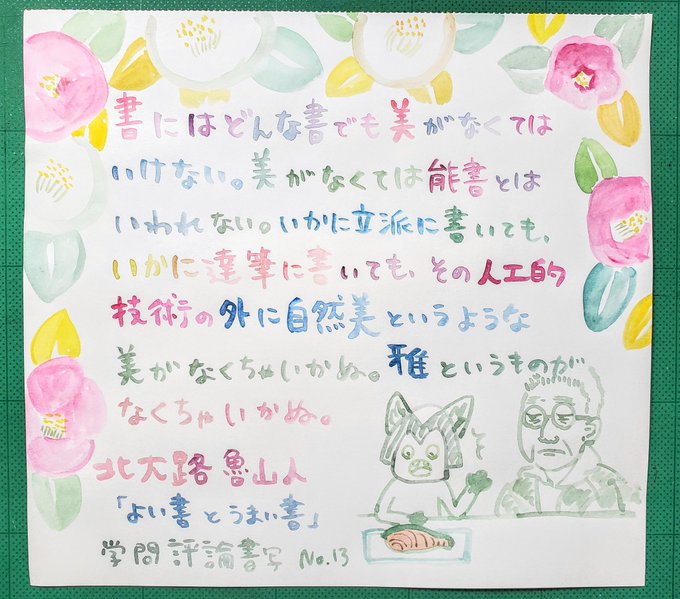 書にはどんな書でも美がなくては
いけない。美がなくては能書とは
いわれない。いかに立派に書いても、
いかに達筆に書いても、その人工的
技術の外に自然美というような
美がなくちゃいかぬ。雅というものが
なくちゃいかぬ。
北大路魯山人
「よい書とうまい書」
学問評論書写 No.13